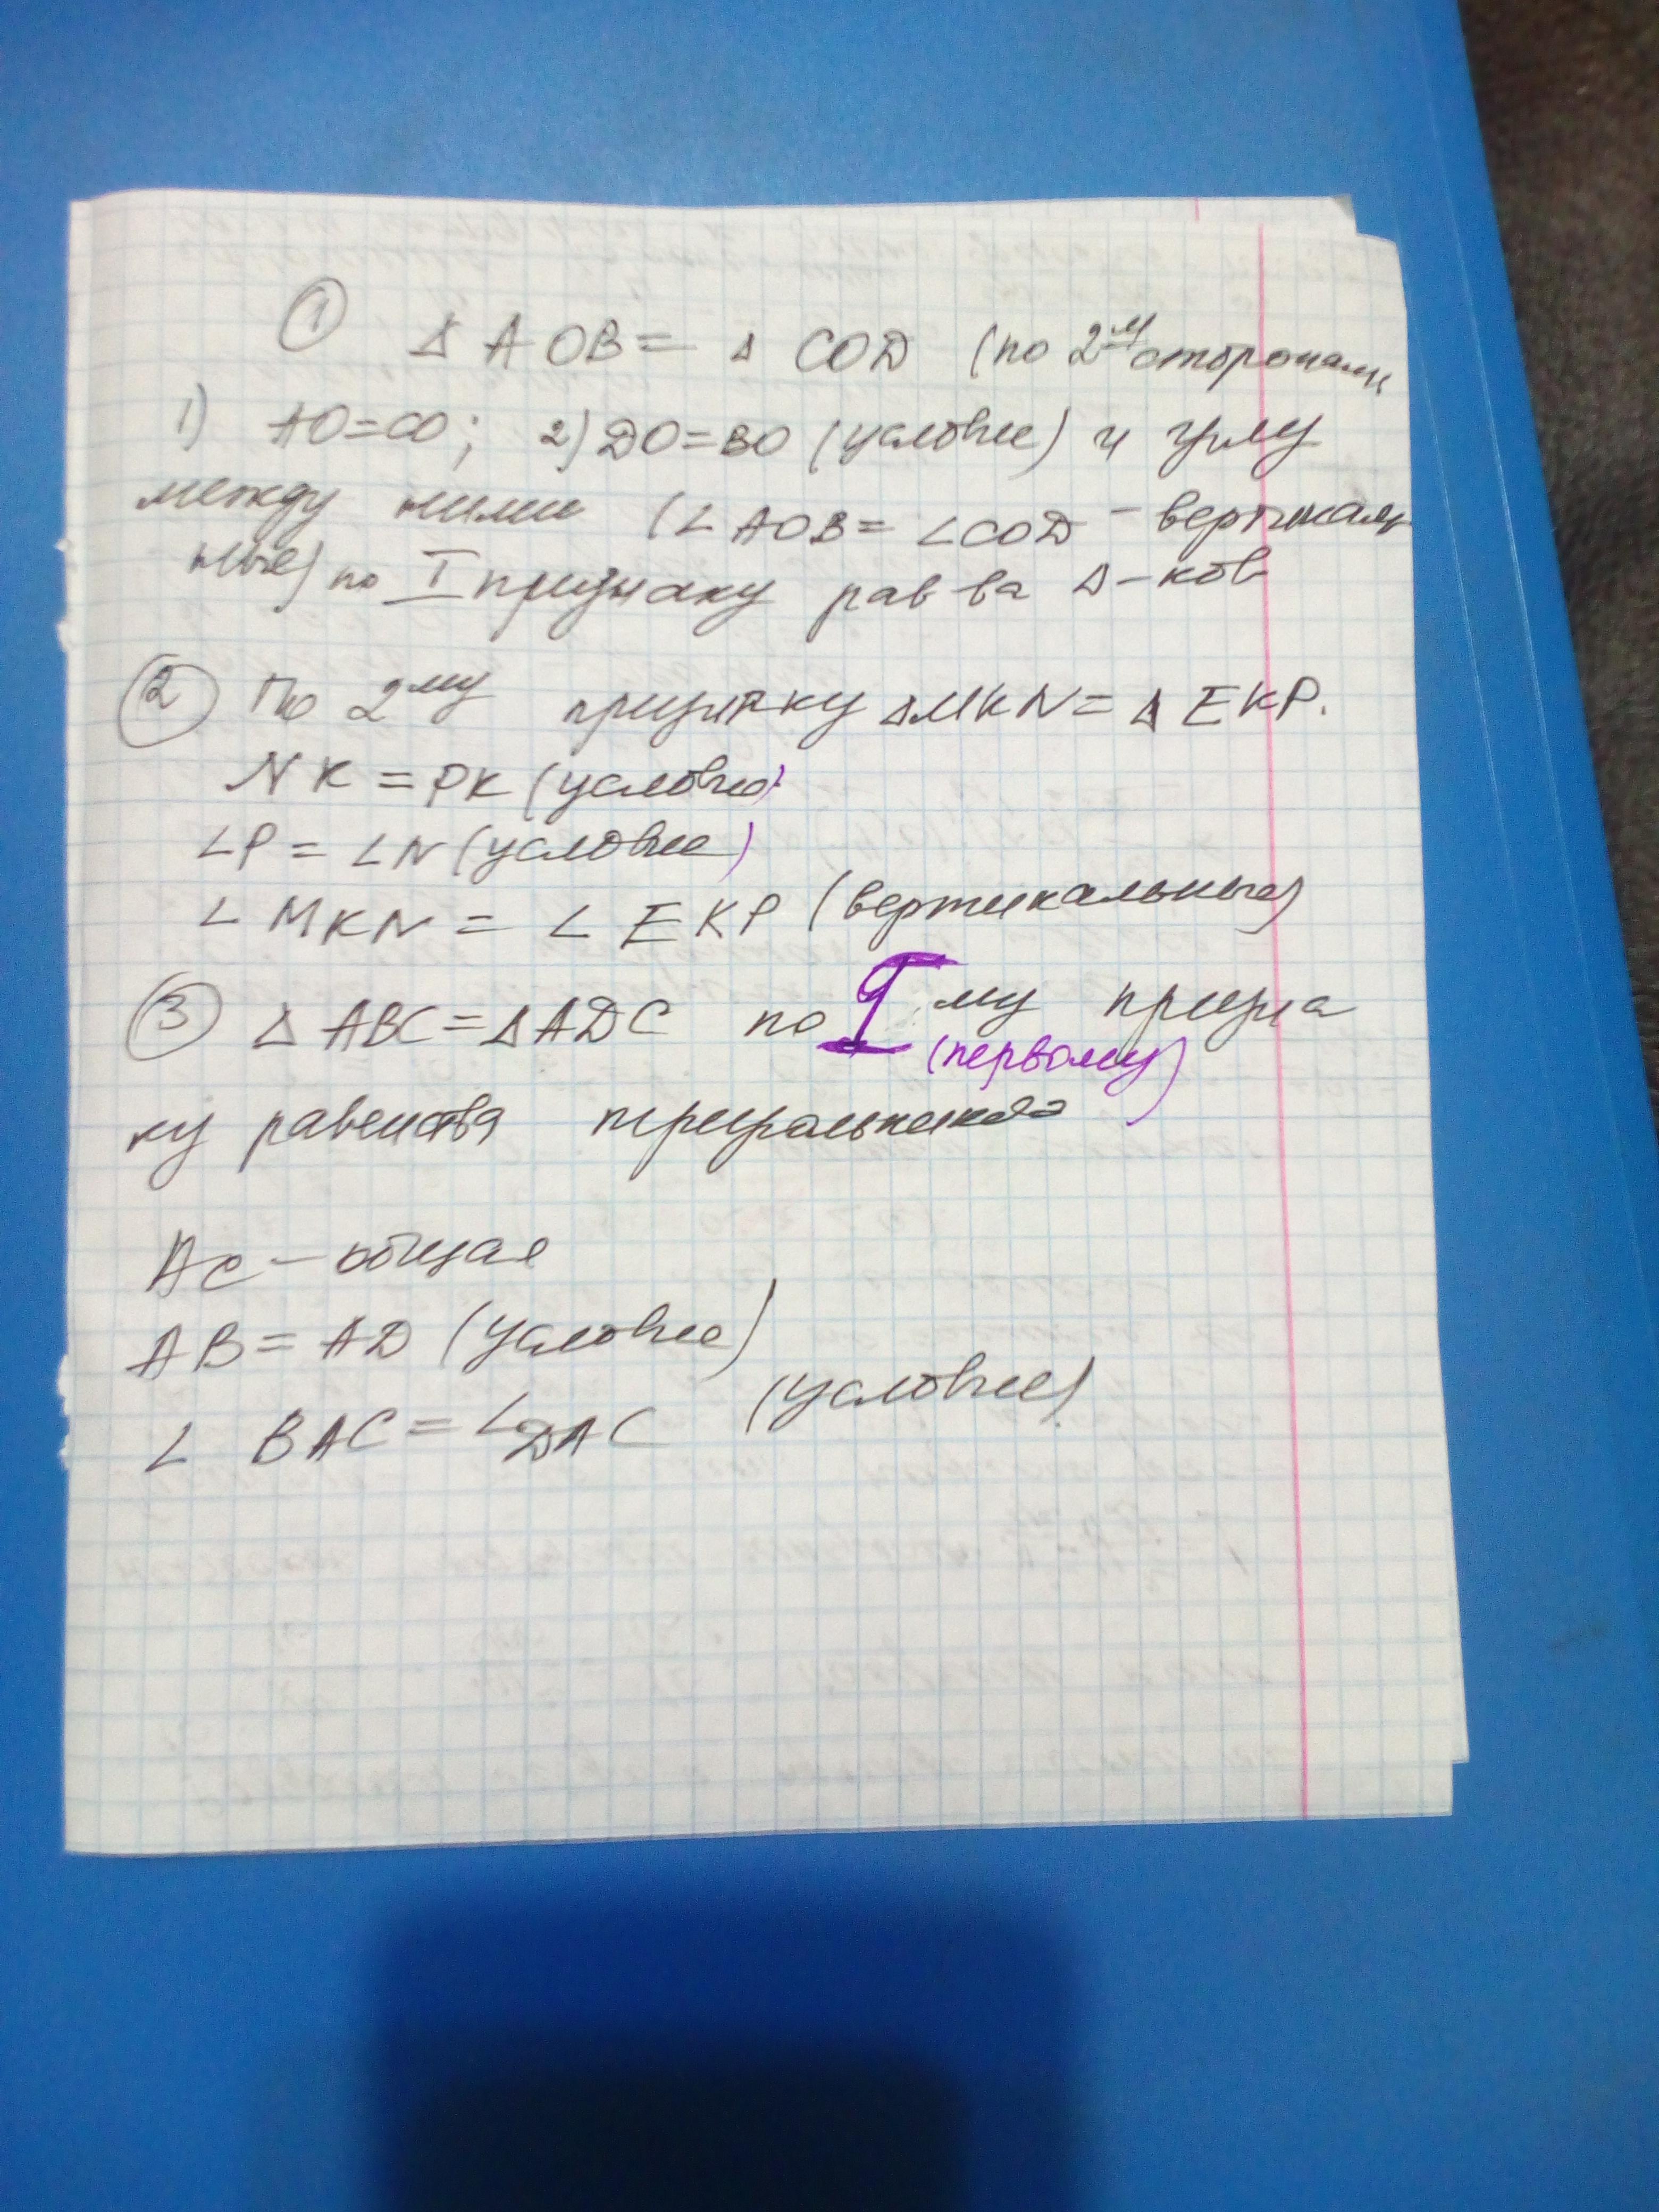 ① Δ AOB = Δ COD (по 2м сторонам
1) AO=CO; 2) DO=BO (условие) и углу
между ними (∠ AOB = ∠COD - вертикаль
ные) по I признаку рав ва Δ-ков
② По 2му признаку ΔMKN = Δ EKP.
NK = PK (условие)
∠P = ∠N (условие)
∠ MKN = ∠ EKP (вертикальные)
③ Δ ABC = ΔADC по I му призна
(первому)
ку равенства треугольников
AC - общая
AB = AD (условие)
∠ BAC = ∠DAC (условие)